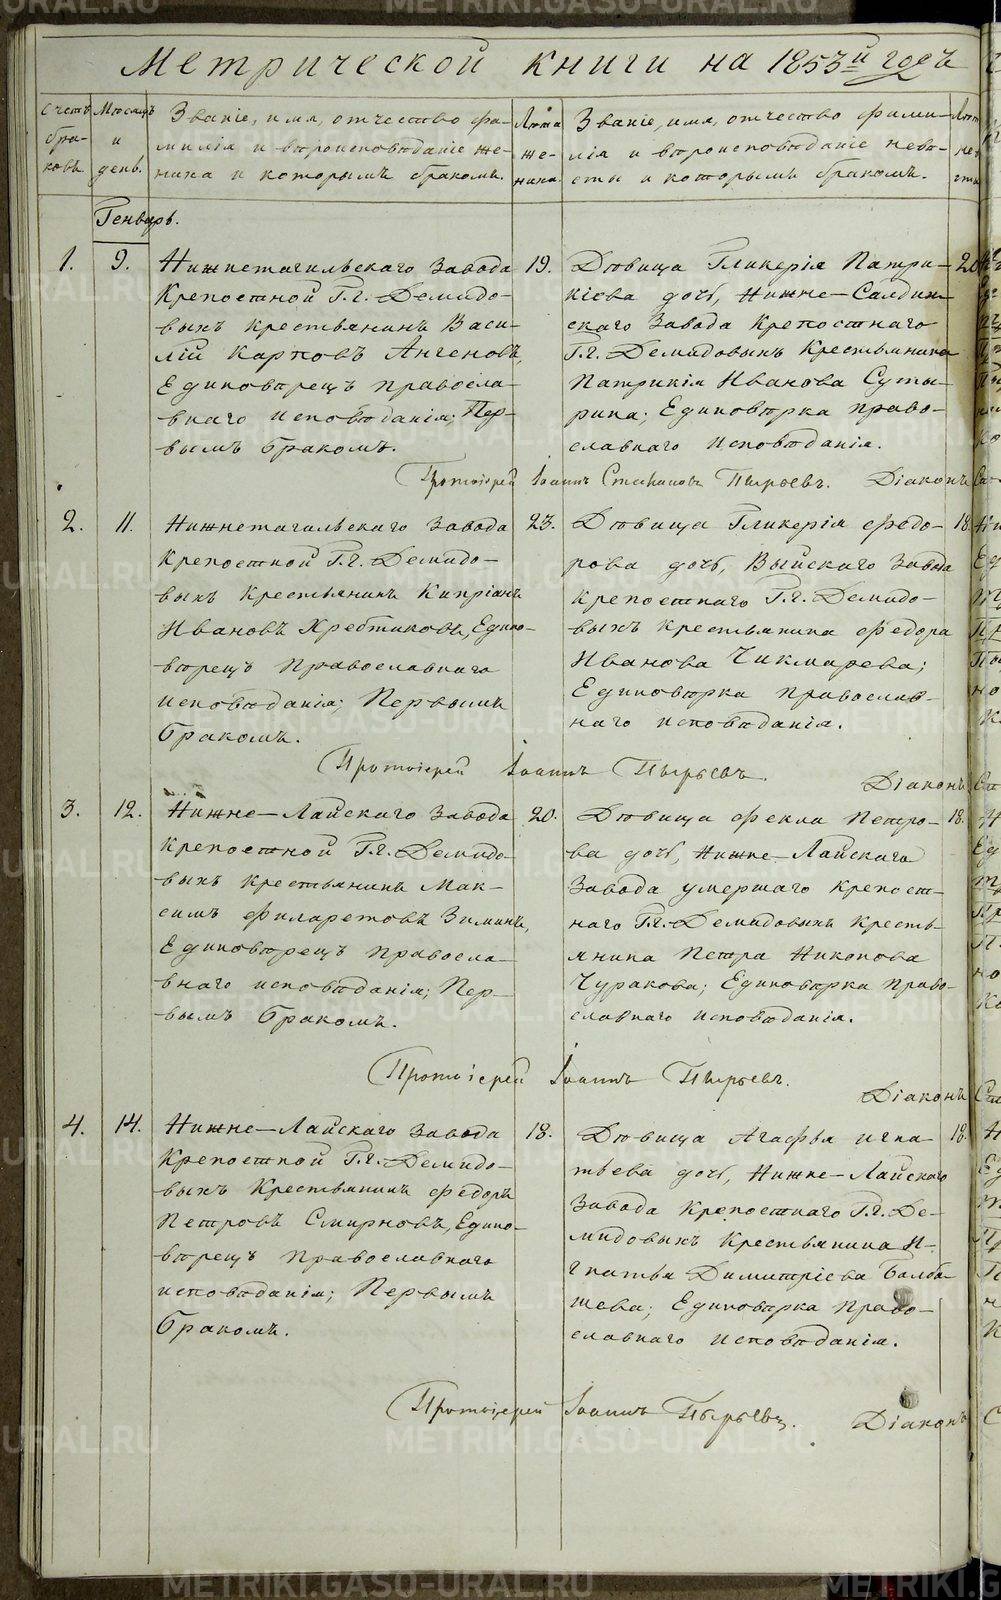 Метрической книги на 1853й годъ
Счетъ браковъ.
Мѣсяцъ и день.
Званіе, имя, отчество фа-
милія и вѣроисповѣданіе же-
ниха и которымъ бракомъ.
Лѣта
же-
ниха.
Званіе, имя, отчество фами-
лія и вѣроисповѣданіе невѣ-
сты и которымъ бракомъ.
Генварь.
1. 9.
Нижнетагильскаго Завода
Крепостной Г.г. Демидо-
выхъ Крестьянинъ Васи-
лій Карповъ Ангеновъ,
Единовѣрецъ правосла-
внаго исповѣданія; Пер-
вымъ бракомъ.
19.
Дѣвица Гликерія Патри-
кіева дочь, Нижне-Салдин-
скаго Завода Крепостнаго
Г.г. Демидовыхъ Крестьянина
Патрикія Иванова Суты-
рина; Единовѣрка право-
славнаго исповѣданія.
20
Протоіерей Іоаннъ Стефановъ Пырьевъ. Діаконъ
2. 11.
Нижнетагильскаго Завода
Крепостной Г.г. Демидо-
выхъ Крестьянинъ Кипріанъ
Ивановъ Хребтиковъ, Едино-
вѣрецъ Православнаго
исповѣданія; Первымъ
бракомъ.
23.
Дѣвица Гликерія Федо-
рова дочь, Выйскаго Завода
Крепостнаго Г.г. Демидо-
выхъ Крестьянина Федора
Иванова Чикмарева;
Единовѣрка православ-
наго исповѣданія.
18.
Протоіерей Іоаннъ Пырьевъ. Діаконъ
3. 12.
Нижне-Лайскаго Завода
Крепостной Г.г. Демидо-
выхъ Крестьянинъ Мак-
симъ Филаретовъ Зиминъ,
Единовѣрецъ правосла-
внаго исповѣданія; Пер-
вымъ бракомъ.
20.
Дѣвица Фекла Петро-
ва дочь, Нижне-Лайскаго
Завода умершаго крепост-
наго Г.г. Демидовыхъ Кресть-
янина Петра Никонова
Чуракова; Единовѣрка Право-
славнаго исповѣданія.
18.
Протоіерей Іоаннъ Пырьевъ.
Діаконъ
4. 14.
Нижне-Лайскаго Завода
Крепостной Г.г. Демидо-
выхъ Крестьянинъ Федоръ
Петровъ Смирновъ, Едино-
вѣрецъ Православнаго
исповѣданія; Первымъ
бракомъ.
18.
Дѣвица Агафья Игна-
тьева дочь, Нижне-Лайскаго
Завода Крепостнаго Г.г. Де-
мидовыхъ Крестьянина И-
гнатья Димитріева Балба-
шева; Единовѣрка право-
славнаго исповѣданія.
18.
Протоіерей Іоаннъ Пырьевъ. Діаконъ
METRIKI.GASO-URAL.RU